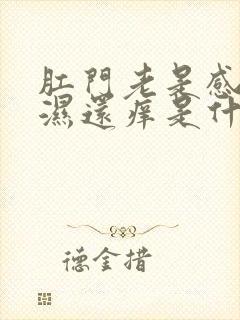 肛門老是感
濕還痒是什
德金措